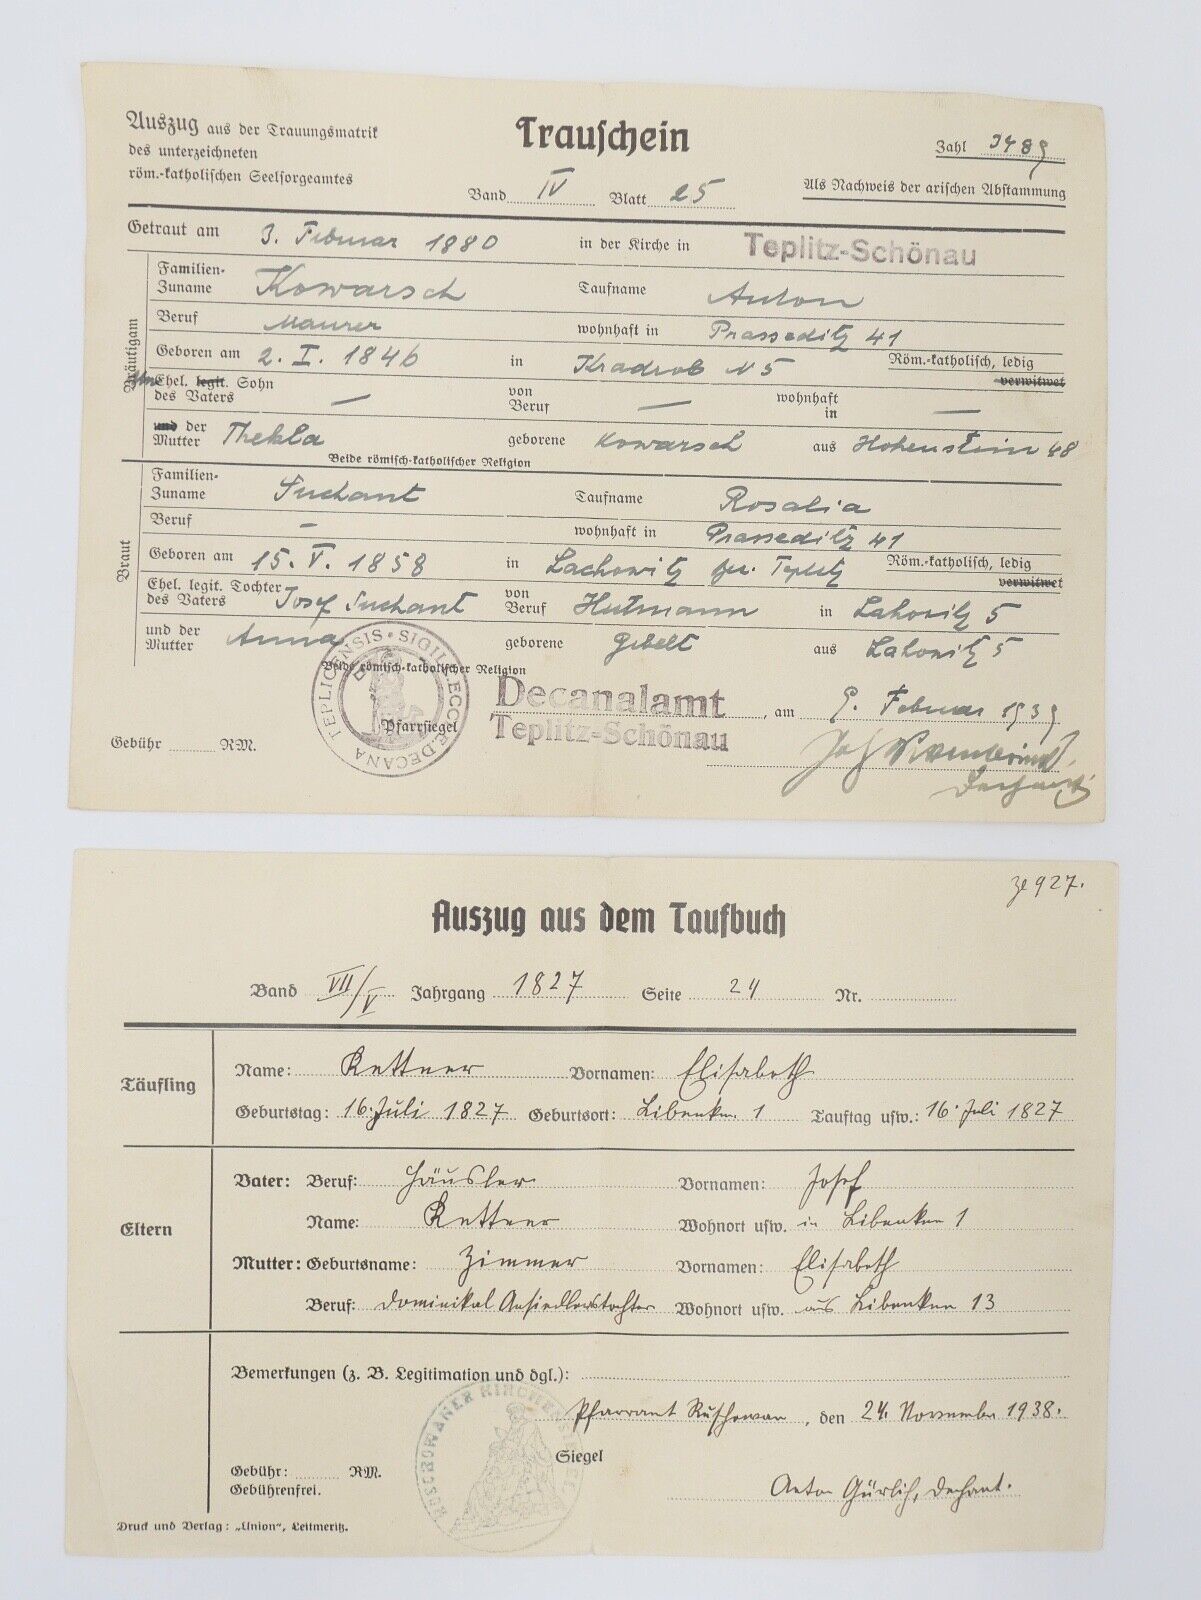 Auszug aus der Trauungsmatrik
des unterzeichneten
röm.-katholischen Seelsorgeamtes
Trauschein
Zahl 3489
Band IV Blatt 25
Als Nachweis der arischen Abstammung
Getraut am 3. Februar 1880 in der Kirche in Teplitz-Schönau
Bräutigam
Familien-
Zuname Kowarsch Taufname Anton
Beruf Maurer wohnhaft in Prasseditz 41
Geboren am 2. I. 1846 in Kradrob N 5 Röm.-katholisch, ledig
verwitwet
Ehel. legit. Sohn
des Vaters — von
Beruf — wohnhaft
in —
und der
Mutter Thekla geborene Kowarsch aus Hohenstein 48
Beide römisch-katholischer Religion
Braut
Familien-
Zuname Suchant Taufname Rosalia
Beruf — wohnhaft in Prasseditz 41
Geboren am 15. V. 1858 in Lachowitz Teplitz Röm.-katholisch, ledig
verwitwet
Ehel. legit. Tochter
des Vaters Josef Suchant von
Beruf Hutmann in Lahowitz 5
und der
Mutter Anna geborene Gebelt aus Lahowitz 5
Beide römisch-katholischer Religion
SIGILL. ECCL. DECANA TEPLICENSIS
Pfarrsiegel
Decanalamt
Teplitz-Schönau , am 9. Februar 1939
Gebühr RM.
Dechant
Zl 927.
Auszug aus dem Taufbuch
Band VII/V Jahrgang 1827 Seite 24 Nr.
Täufling
Name: Kettner Vornamen: Elisabeth
Geburtstag: 16. Juli 1827 Geburtsort: Libenken 1 Tauftag usw.: 16. Juli 1827
Eltern
Vater: Beruf: Häusler Vornamen: Josef
Name: Kettner Wohnort usw. in Libenken 1
Mutter: Geburtsname: Zimmer Vornamen: Elisabeth
Beruf: Dominikal Ansiedlerstochter Wohnort usw. aus Libenken 13
Bemerkungen (z. B. Legitimation und dgl.):
Pfarramt Ruschowan, den 24. November 1938.
RUSCHOWANER KIRCHENSIEGEL
Siegel
Gebühr: RM.
Gebührenfrei.
Anton Gürlich, Dechant.
Druck und Verlag: „Union", Leitmeritz.